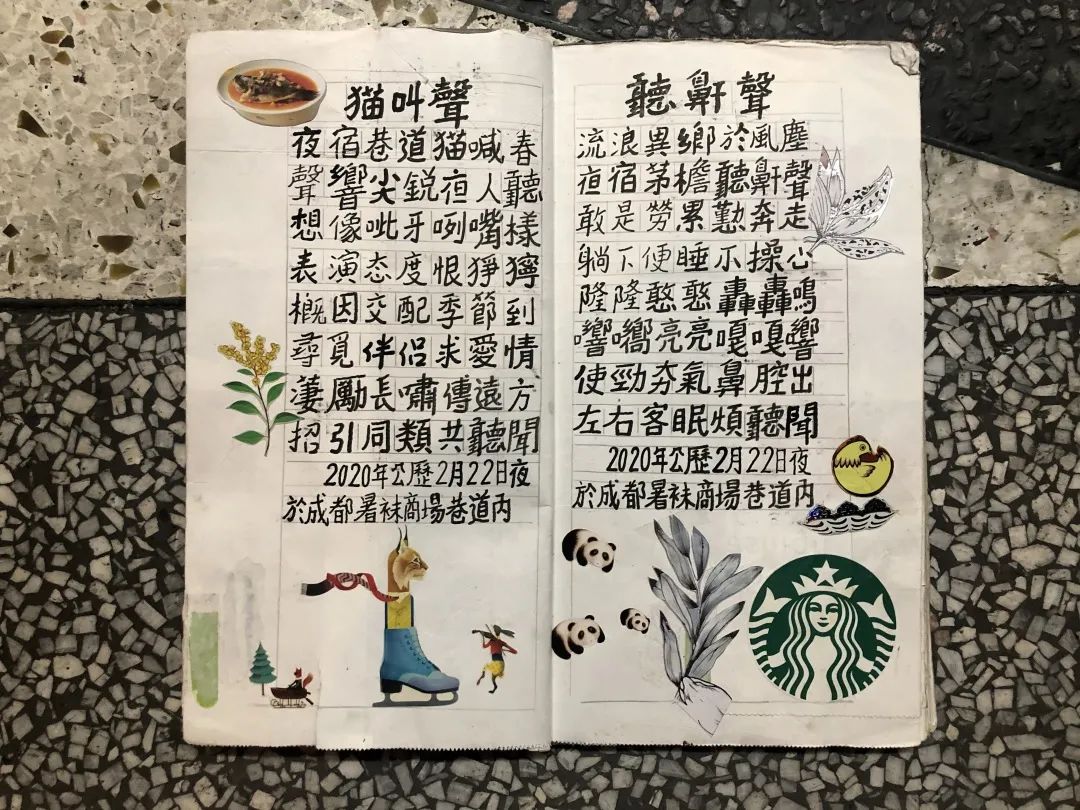 猫叫聲
夜宿巷道猫喊春
聲響尖鋭夜人聽
想像呲牙咧嘴樣
表演态度恨猙獰
概因交配季節到
尋覓伴侣求愛情
淒厲長嘯傳遠方
招引同類共聽聞
2020年公歷2月22日夜
於成都暑袜商場巷道内
聽鼾聲
流浪異鄉於風塵
夜宿茅檐聽鼾聲
敢是勞累勤奔走
躺下便睡不操心
隆隆憨憨轟轟鳴
嚮嚮亮亮嘎嘎響
使勁夯氣鼻腔出
左右客眠煩聽聞
2020年公歷2月22日夜
於成都暑袜商場巷道内